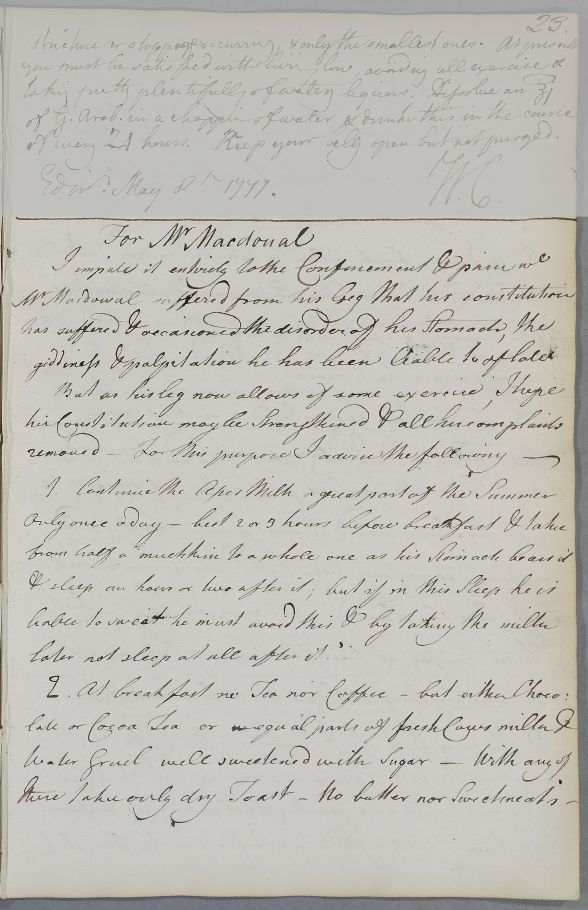 23.
stricture or stopping occurring, & only the smallest ones. At present
you must be satisfied with living low avoiding all exercise &
taking pretty plentifully of watery liquors. Dissolve an ℥i
of G. Arab. in a choppin of water & drink this in the course
of every 24 hours. Keep your belly open but not purged.
Edinr. May 8th 1777. W.C.
For Mr Macdoual
I impute it entirely to the Confinement & pain wc
Mr Macdowal suffered from his Leg that his constitution
has suffered & occasioned the disorder of his Stomach, the
giddiness & palpitation he has been liable to of late
But as his leg now allows of some exercise, I hope
his Constitution may be strengthened & all his complaints
removed - For this purpose I advise the following —
1. Continue the Asses Milk a great part of the Summer
only once a day - best 2 or 3 hours before breakfast & take
from half a mutchkin to a whole one as his Stomach bears it
& sleep an hour or two after it; but if in this Sleep he is
liable to sweat he must avoid this & by taking the milk
later not sleep at all after it.
2. At breakfast no Tea nor Coffee - but either Choco:
late or Cocoa Tea or equal parts of fresh Cows milk &
Water Gruel well sweetened with Sugar — With any of
these take only dry Toast - No butter nor Sweetmeats -